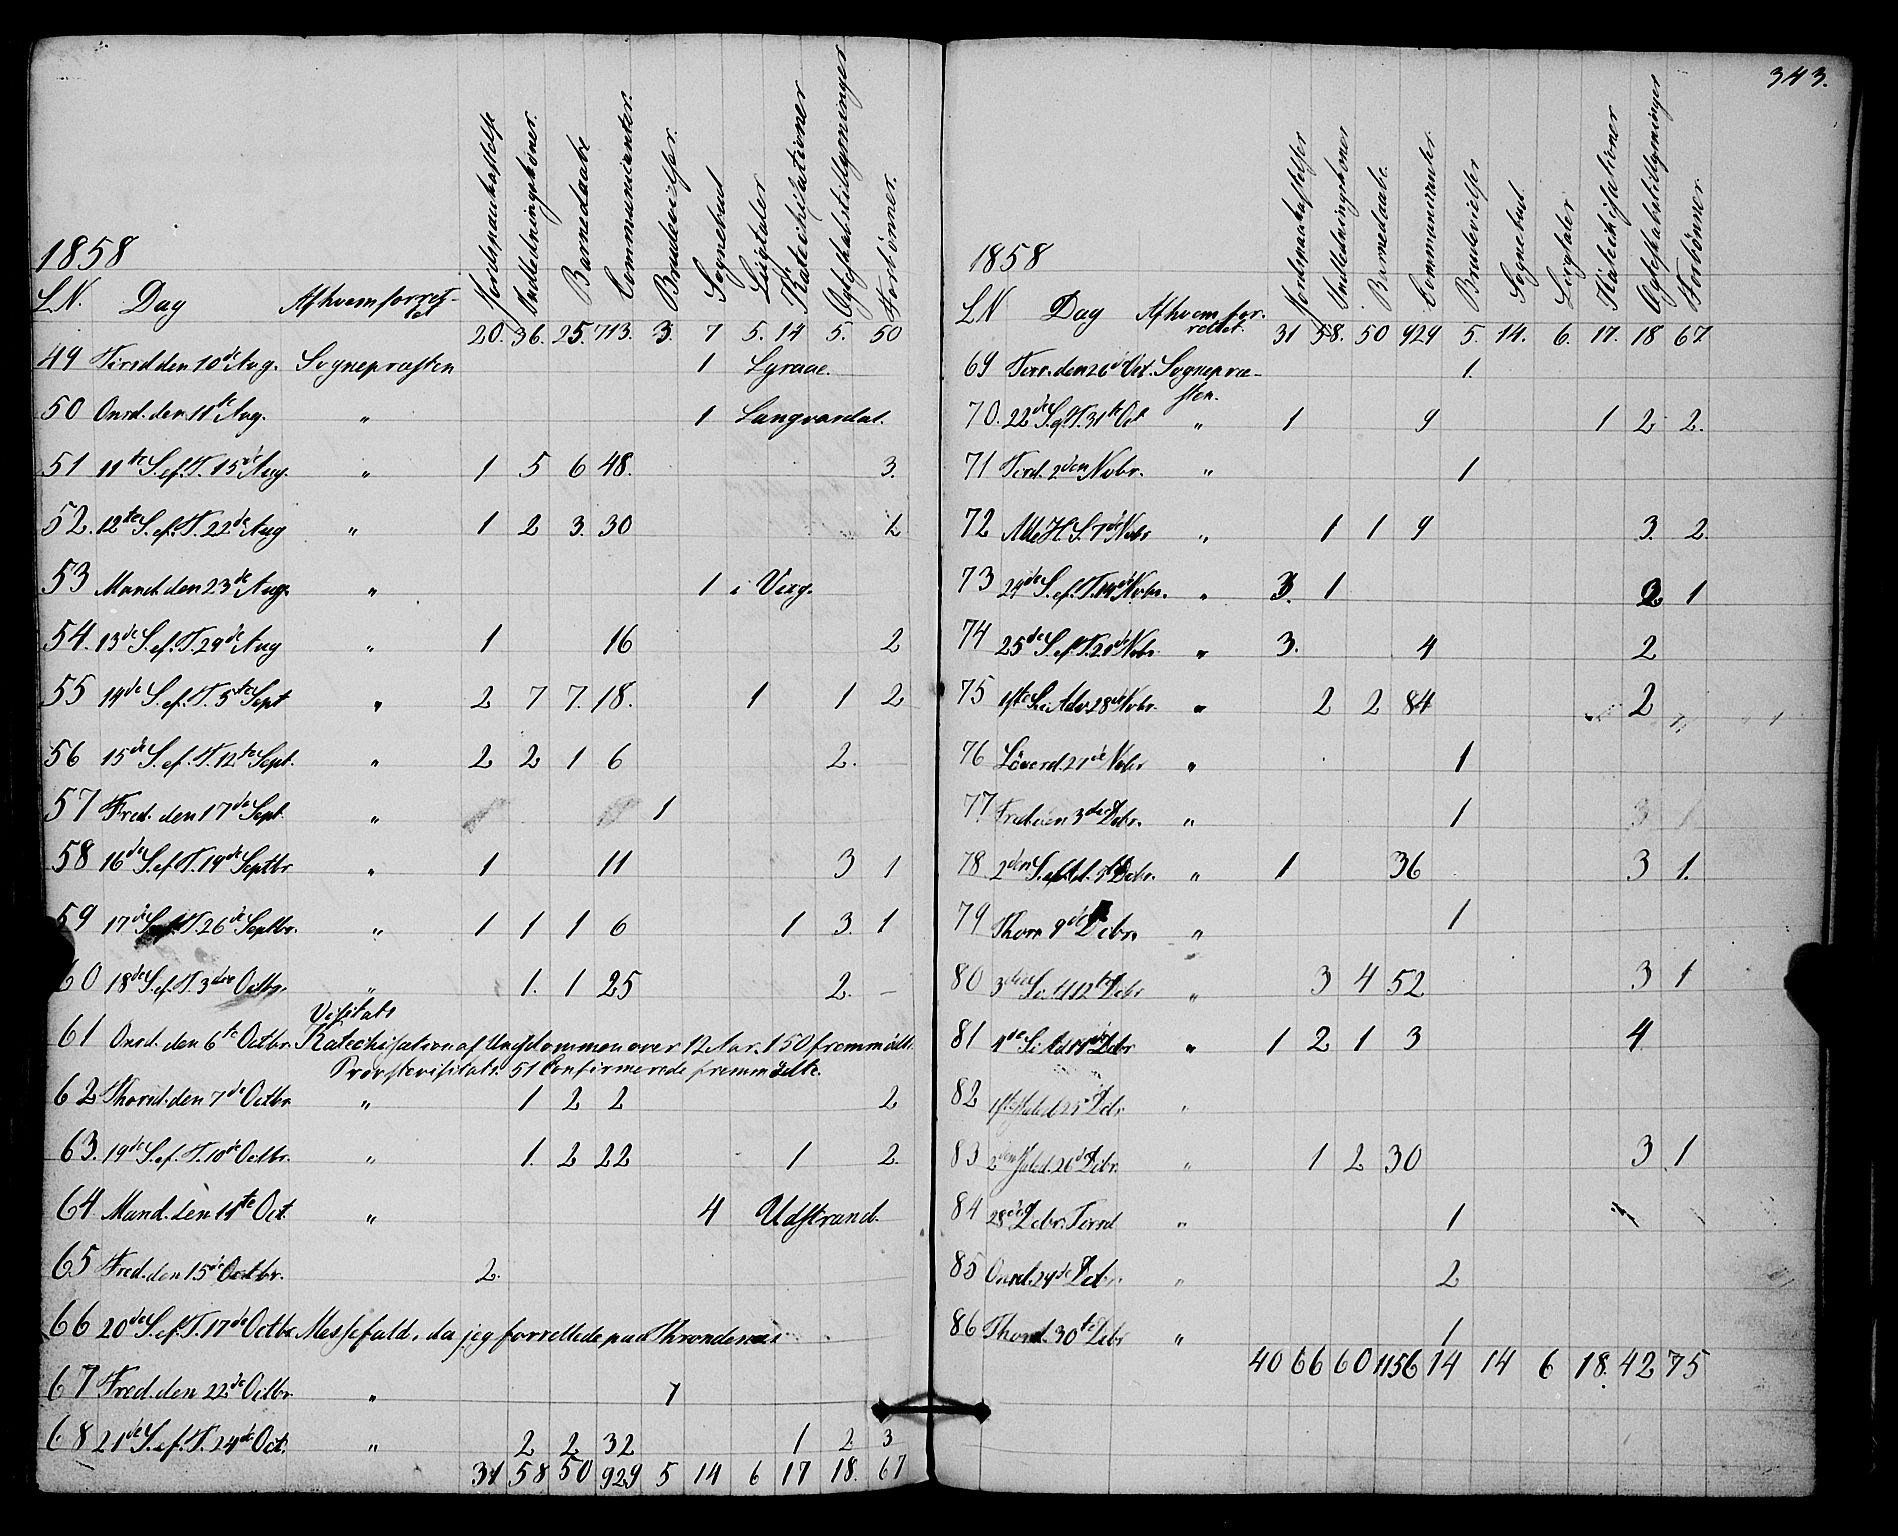 343.
1858
Jordspaakastelse Indledningskoner. Barnedaabe Communicanter. Brudevielser. Sognebud Liigtaler Katechisationer Ægteskabstillysninger Forbönner.
LN. Dag Af hvem forret-
tet
20. 36. 25. 713. 3. 7 5. 14 5. 50
49 Tirsd den 10de Aug. Sognepræsten 1 Lyraae.
50 Onsd. den 11te Aug. " 1 Langvasdal.
51 11te S. ef. T. 15de Aug. " 1 5 6 48. 3.
52. 12te S. ef. T. 22de Aug " 1 2 3. 30 1
53 Mand. den 23de Aug. " 1 i
54. 13de S. ef. T. 29de Aug " 1 16 2
55 14de S. ef. T. 5te Sept " 2 7 7. 18. 1 1 2
56 15de S. ef. T. 12te Sept. " 2 2 1 6 2. -
57 Fred. den 17de Sept " 1
58 16de S. ef. T. 19de Septbr " 1 11 3 1
59 17de S. ef. T. 26de Septbr. " 1 1 1 6 1 3. 1
60 18de S. ef. T. 3die Octbr. " 1. 1 25 2. -
Visitats
61 Onsd. den 6te Octbr. Katechisation af Ungdommen over 12 Aar. 150 fremmödt.
Provstevisitats. 51 Confirmerede fremmödte.
62 Thorsd. den 7de Octbr " 1 2 2 2
63. 19de S. ef. T. 10de Octbr. " 1. 2 22 1 2.
64 Mand. den 11te Oct. " 4 Udstrand.
65 Fred. den 15de Octbr. 2.
66 20de S. ef. T. 17de Octbr Messefald, da jeg forrettede paa Throndenæs
67 Fred. den 22de Octbr. " 1
68 21de S. ef. T. 24de Oct. " 2 2 32 1 2 3
31 58 50 929 5 14 6 17 18. 67
1858
Jordspaakastelser Indledningskoner Barnedaabe. Communicanter Brudevielser Sognebud. Liigtaler Katechisationer Ægteskabstillysninger Forbönner.
LN Dag Af hvem for-
rettet.
31 58. 50 929 5. 14. 6. 17. 18 67
69 Tirsd. den 26de Oct. Sognepræ-
sten. 1.
70. 22de S. ef. T. 31te Oct " 1 9 1 2 2.
71 Tirsd. 2den Nvbr. " 1
72 Alle H. S. 7de Nvbr " 1 1 9 3. 2.
73 24de S. ef. T. 14de Nvbr. " 3. 1 2 1
74 25de S. ef. T. 21de Nvbr " 3. 4 2
75 1ste S. i Adv. 28de Nvbr. " 2 2 84 2
76 Löverd. 27de Nvbr " 1
77. Fred. den 3die Debr. " 1 3 1
78. 2den S. ef. Ad. 5te Debr. " 1 36 3 1.
79 Thorsd. 9de Debr. " 1
80 3die S. i Ad 12te Debr " 3 4 52 3 1
81 4de S. i Ad 19de Debr " 1 2 1 3 4.
82 1ste Juled. 25de Debr "
83 2den Juled. 26de Debr. " 1 2 30 3 1
84 28de Debr. Tirsd " 1
85 Onsd. 29de Debr. " 2
86 Thorsd. 30te Debr " 1
40 66 60 1156 14 14 6 18. 42 75